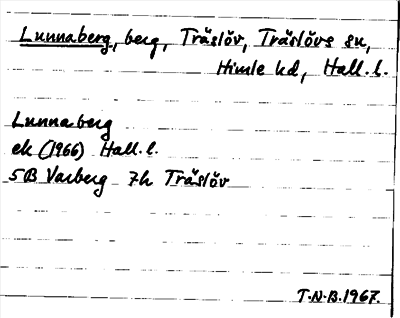 Lunnaberg, berg, Träslöv, Träslövs sn,
Himle hd, Hall. l.
Lunnaberg
ek (1966) Hall. l.
5B Varberg 7h Träslöv
T.N.B. 1967.